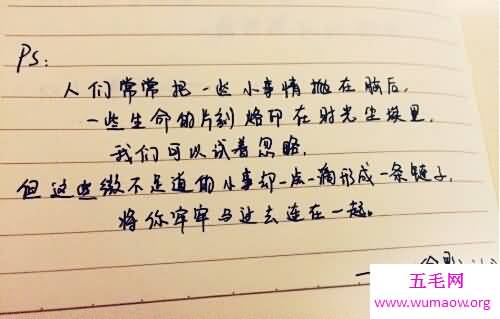 PS:
人们常常把一些小事情抛在脑后,
一些生命的片刻烙印在时光尘埃里,
我们可以试着忽略,
但这些微不足道的小事却一点一滴形成一条链子,
将你牢牢与过去连在一起。
五毛网
www.wumaow.org